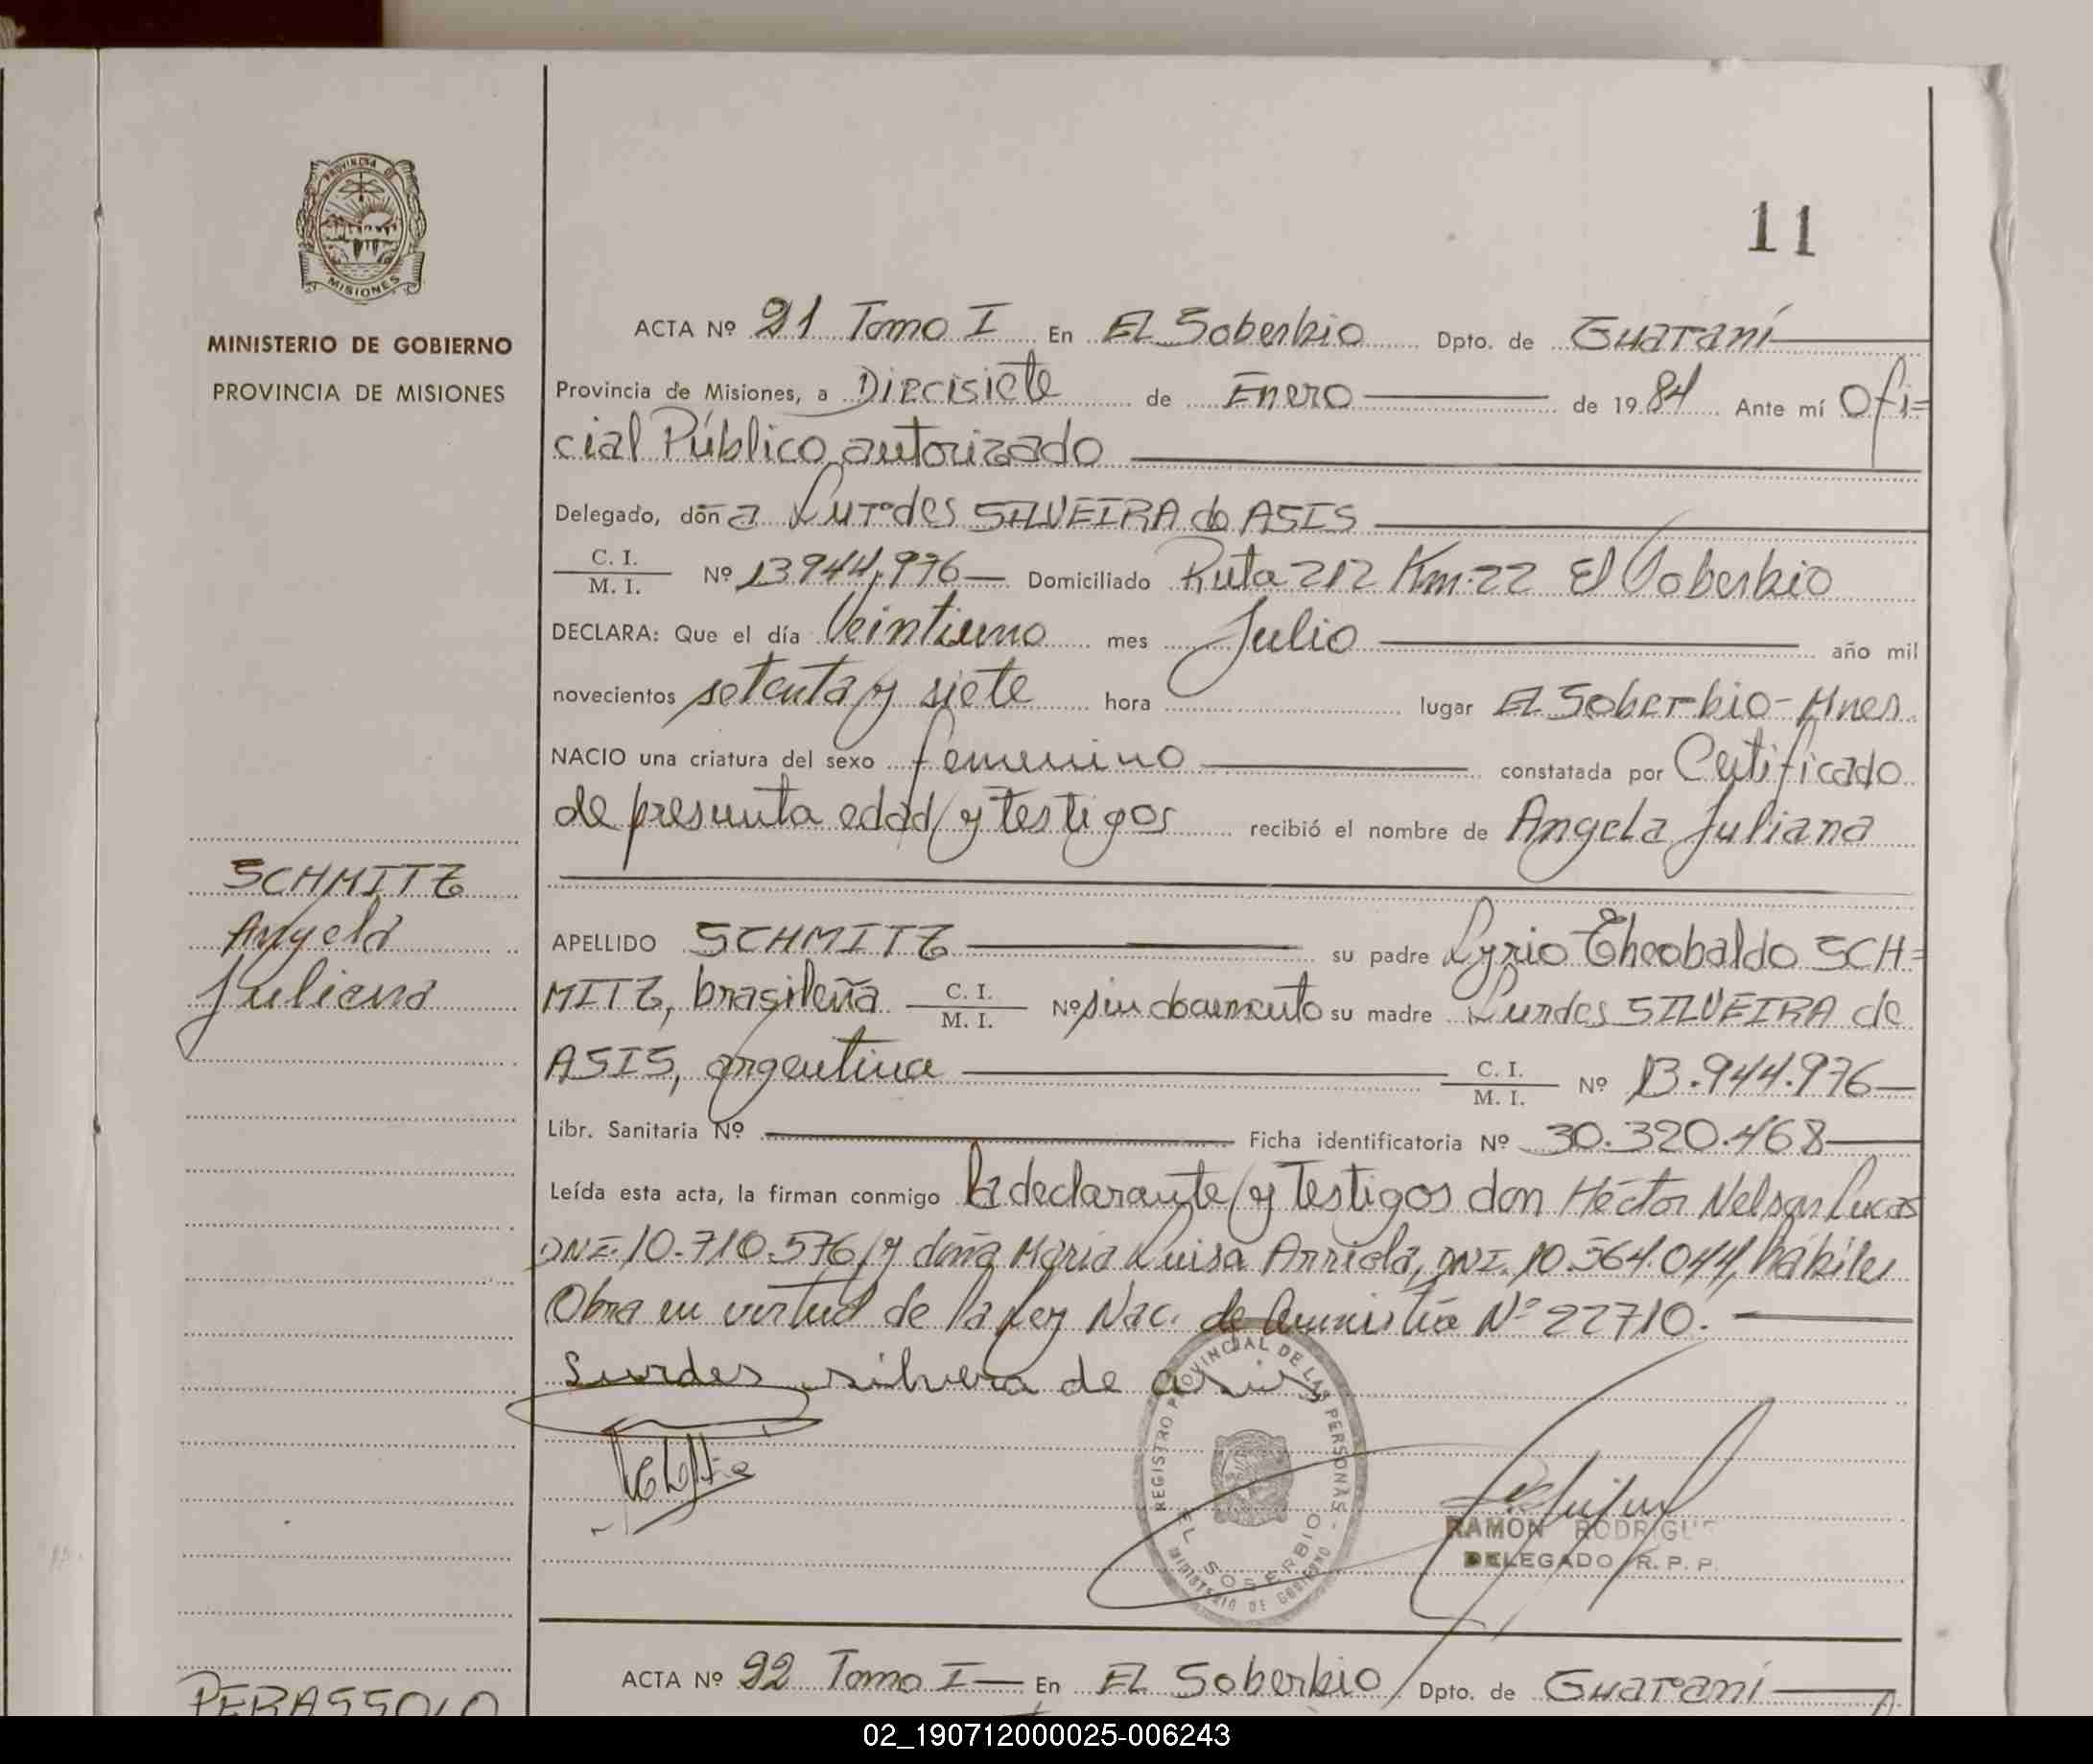 11
PROVINCIA DE
MISIONES
MINISTERIO DE GOBIERNO
PROVINCIA DE MISIONES
ACTA Nº 21 Tomo I En EL Soberbio Dpto. de Guaraní
Provincia de Misiones, a Diecisiete de Enero de 1984 Ante mí Ofi=
cial Público autorizado
Delegado, doña Lurdes SILVEIRA de ASIS
C. I.
M. I. Nº 13.944.976 Domiciliado Ruta 212 Km:22 El Soberbio
DECLARA: Que el día Veintiuno mes Julio año mil
novecientos setenta y siete hora lugar EL Soberbio-Mnes
NACIO una criatura del sexo femenino constatada por Certificado
de presunta edad y testigos recibió el nombre de Angela Juliana
SCHMITZ
Angela
Juliana
APELLIDO SCHMITZ su padre Lyrio Theobaldo SCH=
MITZ, brasileña C. I. M. I. Nº sin documento su madre Lurdes SILVEIRA de
ASIS, argentina C. I. M. I. Nº 13.944.976
Libr. Sanitaria Nº Ficha identificatoria Nº 30.320.468
Leída esta acta, la firman conmigo la declarante y testigos don Héctor Nelson Lucas
DNI. 10.710.576 y doña María Luisa Arriola, DNI. 10.564.044, hábiles
Obra en virtud de la ley Nac. de Amnistía Nº 22710.
Lurdes silvera de asis
REGISTRO PROVINCIAL DE LAS PERSONAS
EL SOBERBIO
MINISTERIO DE GOBIERNO
RAMON RODRIGU
DELEGADO R. P. P.
ACTA Nº 22 Tomo I En EL Soberbio Dpto. de Guaraní
PERASSOLO
02_190712000025-006243